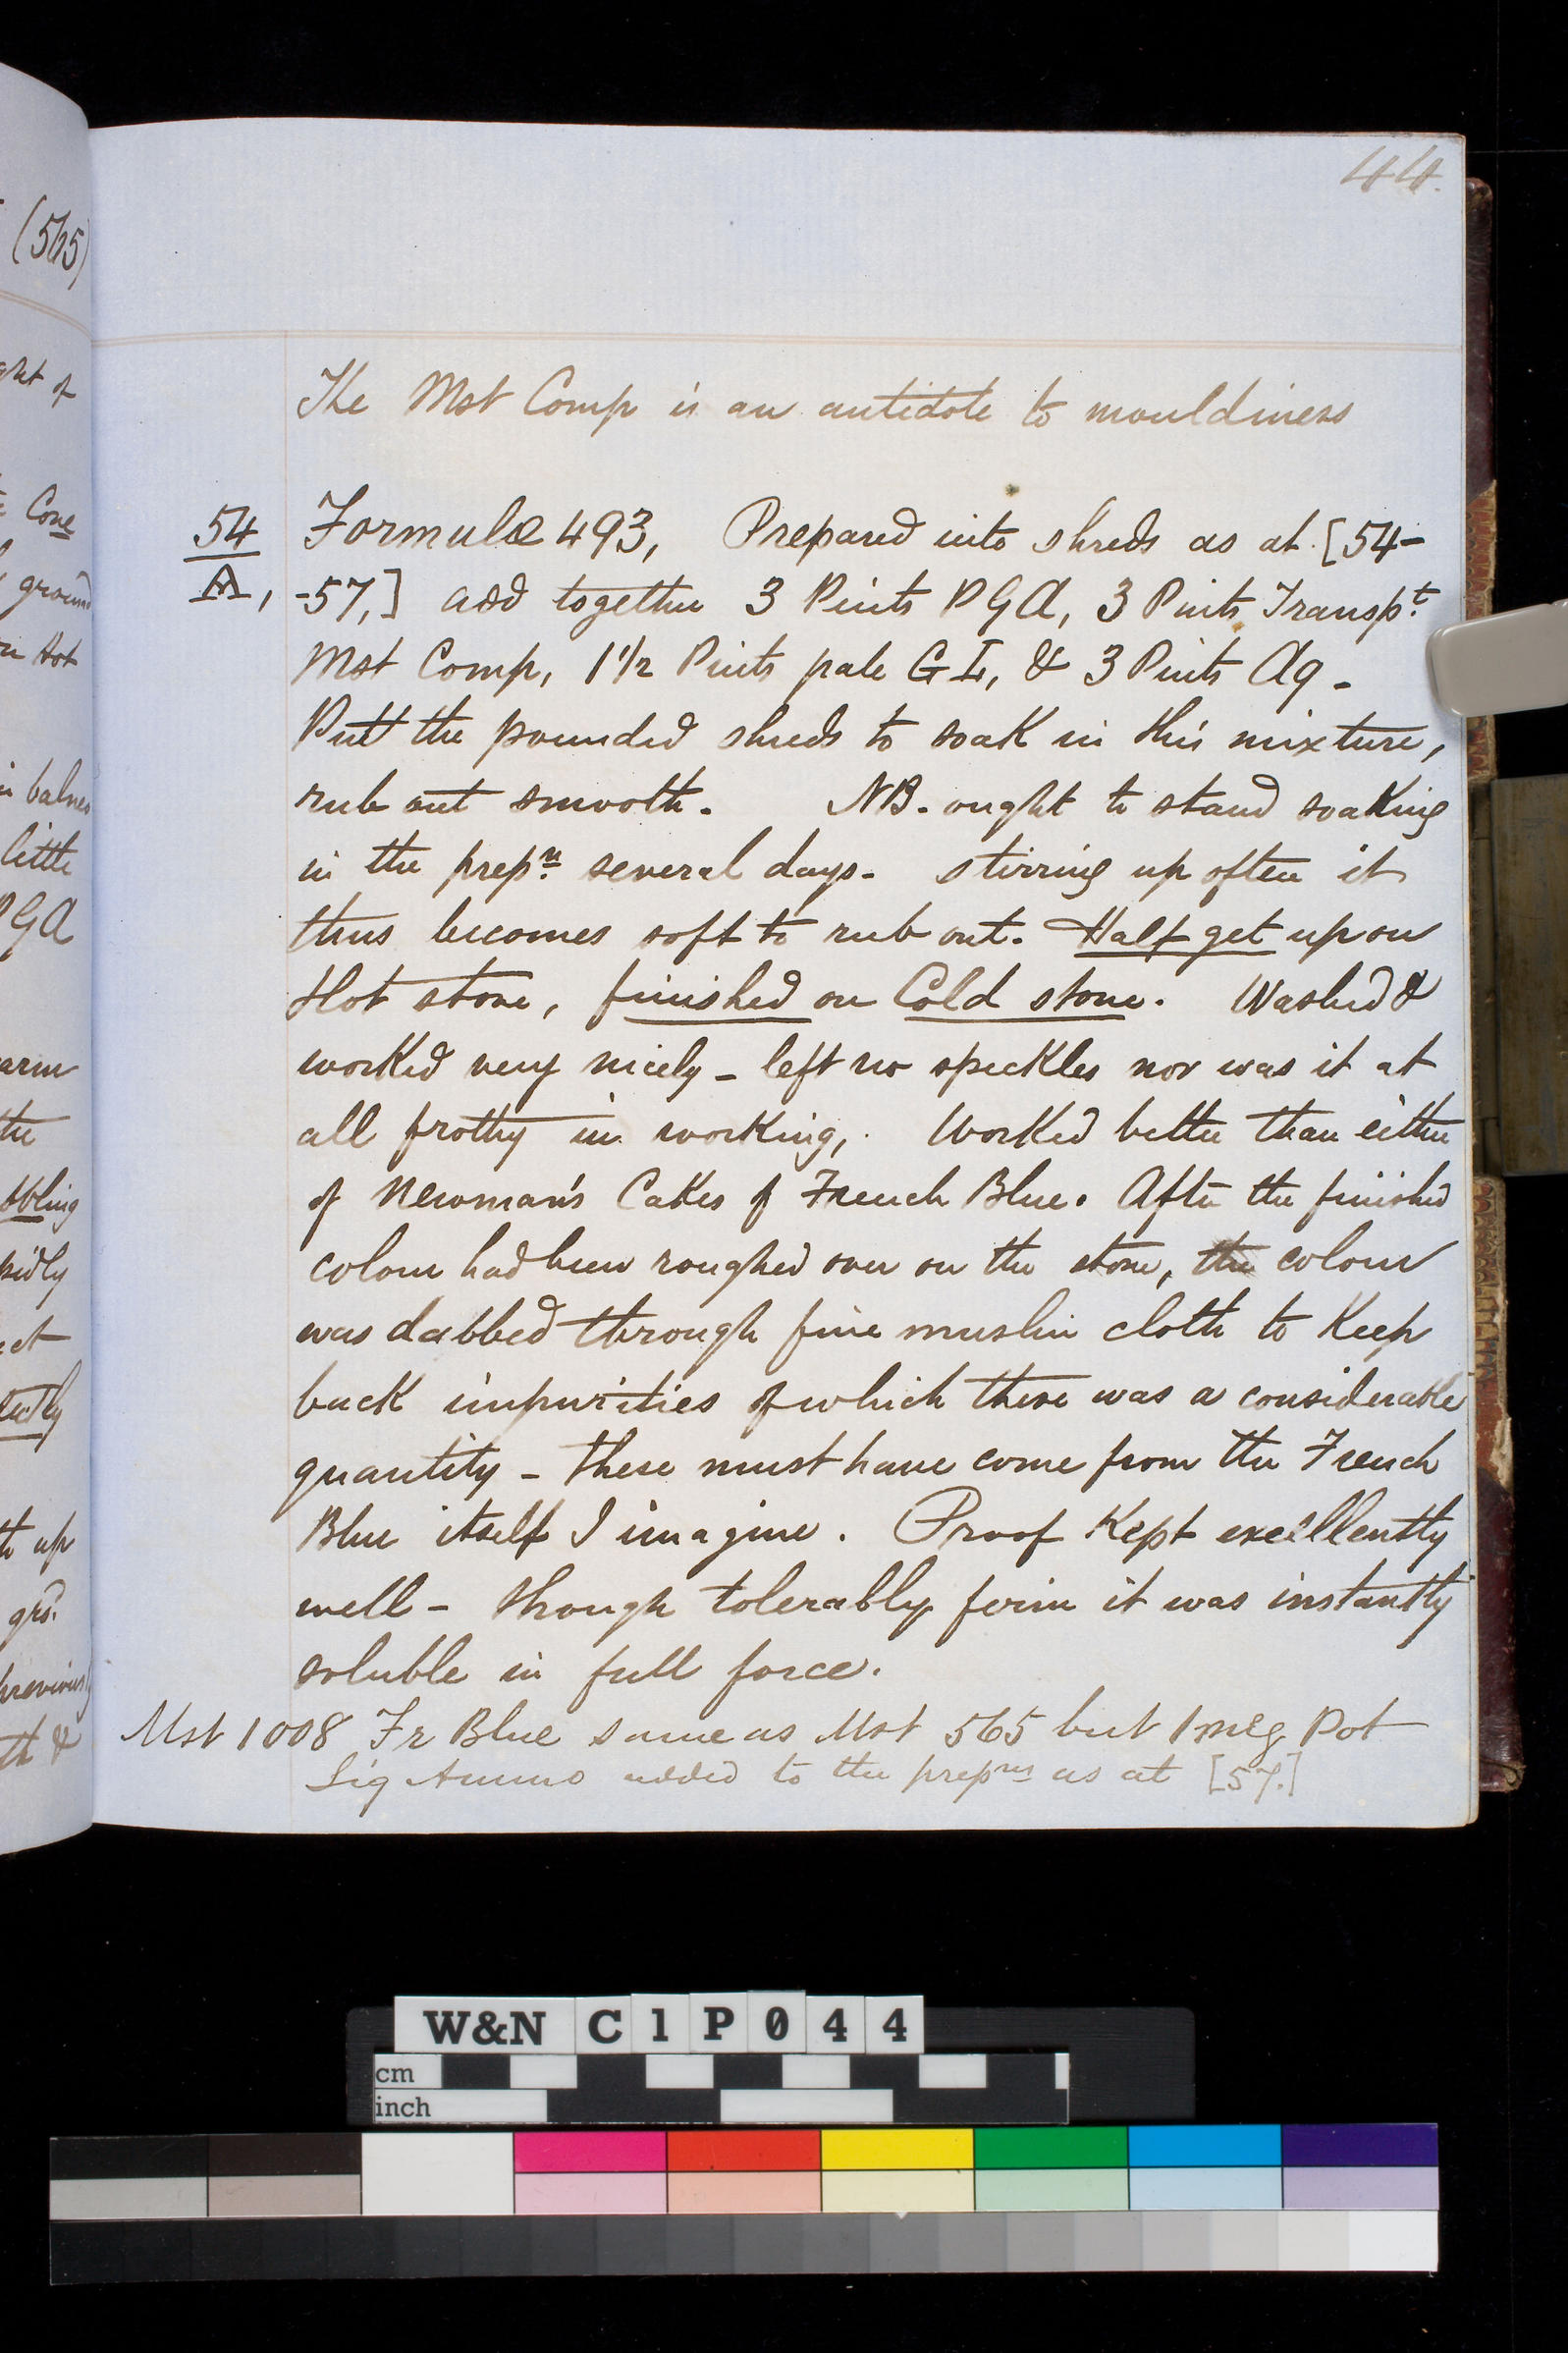 44.
The Mst Comp is an antidote to mouldiness
54/A, Formula 493, Prepared into shreds as at [54-
-57,] add together 3 Pints P G A, 3 Pints Transpt.
Mst Comp, 1 1/2 Pints pale G L, & 3 Pints Aq -
Putt the pounded shreds to soak in this mixture,
rub out smooth. NB. ought to stand soaking
in the prepn. several days. stirring up often it
thus becomes soft to rub out. Half get up on
Hot stone, finished on Cold stone. Washed &
worked very nicely - left no speckles nor was it at
all frothy in working, Worked better than either
of Newman's Cakes of French Blue. After the finished
colour had been roughed over on the stone, the colour
was dabbed through fine muslin cloth to Keep
back impurities of which there was a considerable
quantity - these must have come from the French
Blue itself I imagine. Proof Kept excellently
well - though tolerably firm it was instantly
soluble in full force.
Mst 1008 Fr Blue same as Mst 565 but 1 meg Pot
Liq Ammo added to the prepns as at [57.]
(565)
ght of
Cone
ground
Hot
little
PGA
arm
the
up
grd.
previously
th &
W&N C1P044
cm
inch